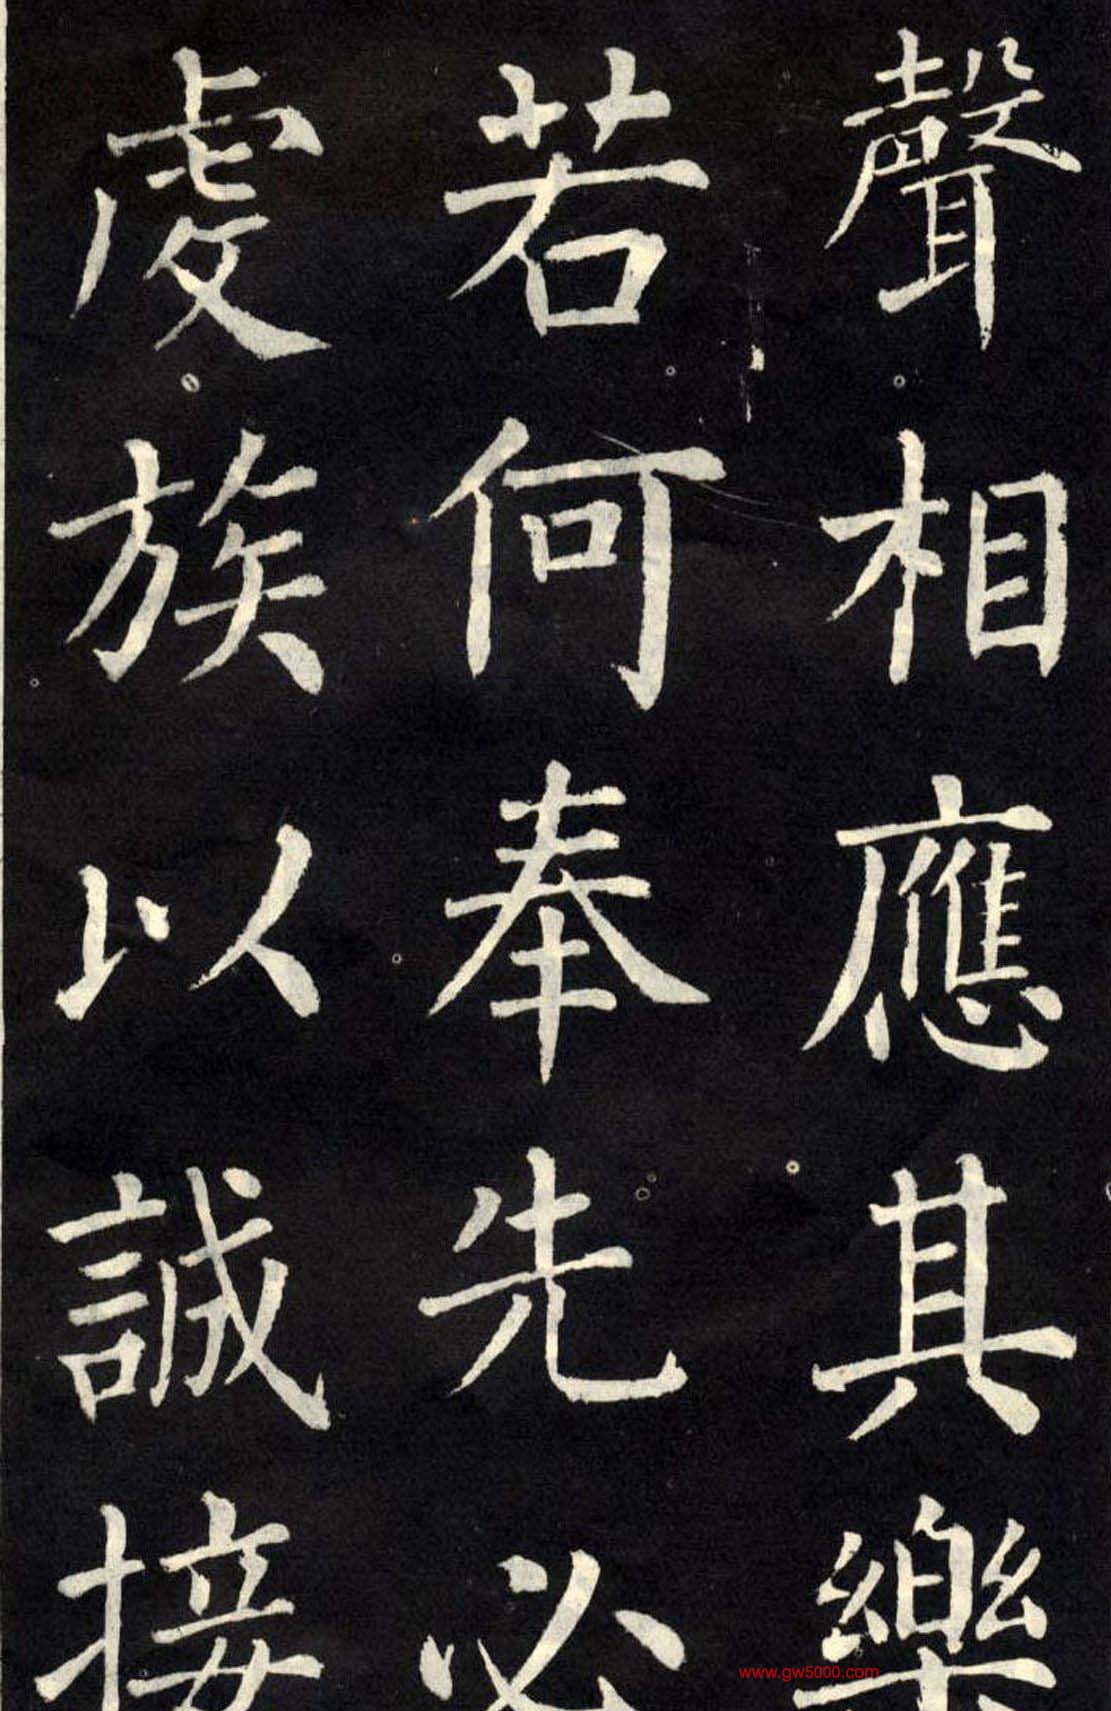 聲相應其樂
若何奉先必
處族以誠接
www.gw5000.com